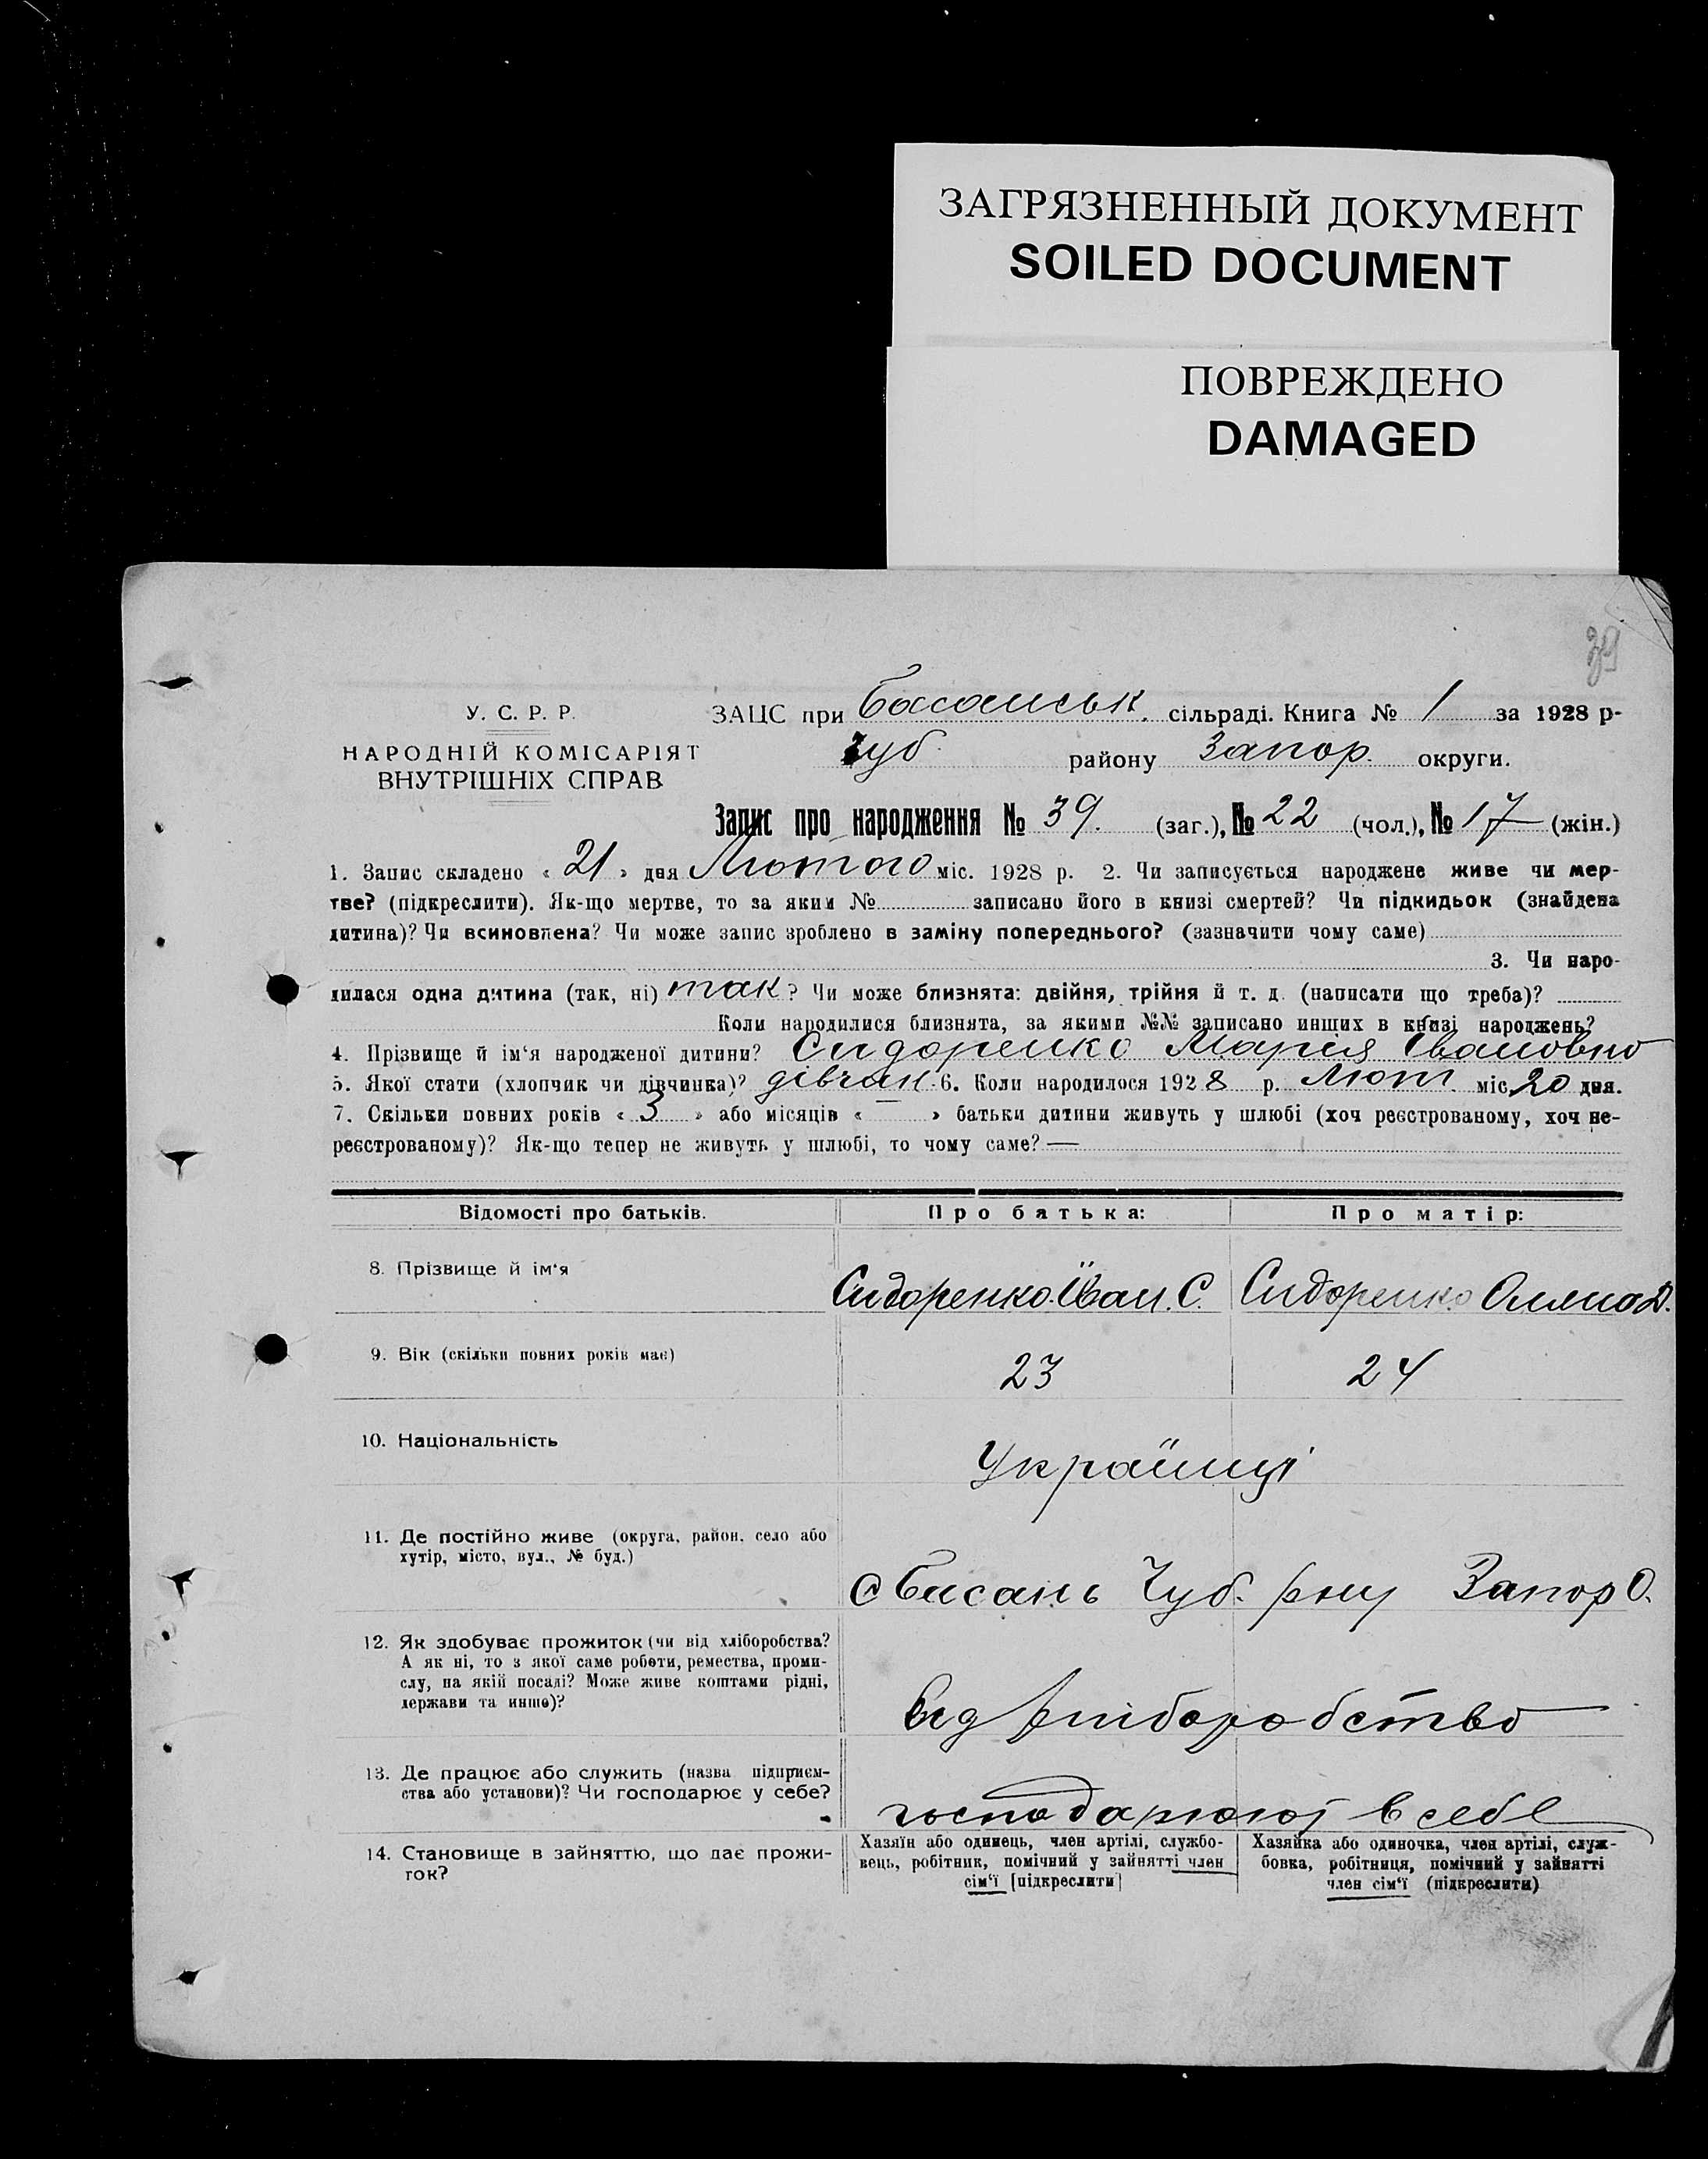 ЗАГРЯЗНЕННЫЙ ДОКУМЕНТ
SOILED DOCUMENT
ПОВРЕЖДЕНО
DAMAGED
39
У. С. Р. Р.
НАРОДНІЙ КОМІСАРІЯТ
ВНУТРІШНІХ СПРАВ
ЗАЦС при Басанськ. сільраді. Книга № 1 за 1928 р-
Чуб. району Запор. округи.
Запис про народження № 39. (заг.), № 22 (чол.), № 17 (жін.)
1. Запис складено « 21 » дня Лютого міс. 1928 р. 2. Чи записується народжене живе чи мер-
тве? (підкреслити). Як-що мертве, то за яким № записано його в книзі смертей? Чи підкидьок (знайдена
дитина)? Чи всиновлена? Чи може запис зроблено в заміну попереднього? (зазначити чому саме)
3. Чи наро-
дилася одна дитина (так, ні) так ? Чи може близнята: двійня, трійня й т. д. (написати що треба)?
Коли народилися близнята, за якими №№ записано инших в книзі народжень?
4. Прізвище й ім‘я народженої дитини? Сидоренко Марія Івановно
5. Якої стати (хлопчик чи дівчинка)? дівчин. 6. Коли народилося 1928 р. Лют. міс. 20 дня.
7. Скільки повних років « 3 » або місяців « — » батьки дитини живуть у шлюбі (хоч реєстрованому, хоч не-
реєстрованому)? Як-що тепер не живуть у шлюбі, то чому саме? —
Відомості про батьків. Про батька: Про матір:
8. Прізвище й ім‘я Сидоренко Іван. С. Сидоренко Оляна Д.
9. Вік (скільки повних років має) 23 24
10. Національність Українці
11. Де постійно живе (округа, район, село або
хутір, місто, вул., № буд.)
с Басань Чуб. рну Запор О.
12. Як здобуває прожиток (чи від хліборобства?
А як ні, то з якої саме роботи, ремества, проми-
слу, на якій посаді? Може живе коштами рідні,
держави та инше)?
від хліборобство
13. Де працює або служить (назва підприєм-
ства або установи)? Чи господарює у себе?
господарюют в себе
14. Становище в зайняттю, що дає прожи-
ток?
Хазяїн або одинець, член артілі, службо-
вець, робітник, помічний у зайнятті член
сім‘ї [підкреслити]
Хазяйка або одиночка, член артілі, служ-
бовка, робітниця, помічний у зайнятті
член сім‘ї (підкреслити)